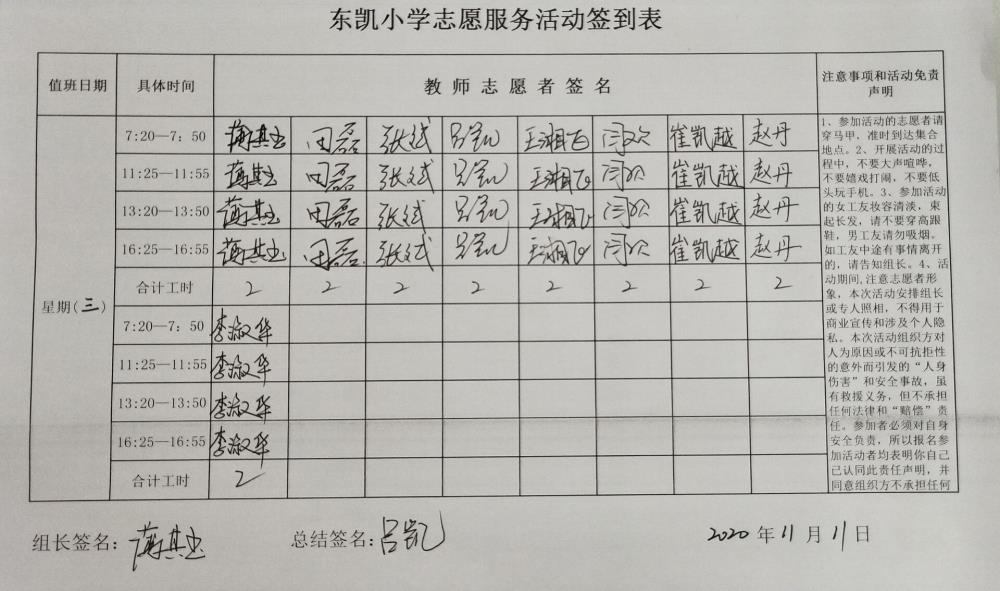 东凯小学志愿服务活动签到表
值班日期 具体时间 教师志愿者签名 注意事项和活动免责声明
7:20—7:50 田磊 张斌 吕凯 王湘飞 闫欢 崔凯越 赵丹
11:25—11:55 田磊 张斌 吕凯 王湘飞 闫欢 崔凯越 赵丹
13:20—13:50 田磊 张斌 吕凯 王湘飞 闫欢 崔凯越 赵丹
16:25—16:55 田磊 张斌 吕凯 王湘飞 闫欢 崔凯越 赵丹
合计工时 2 2 2 2 2 2 2 2
星期(三)
7:20—7:50 李淑华
11:25—11:55 李淑华
13:20—13:50 李淑华
16:25—16:55 李淑华
合计工时 2
1、参加活动的志愿者请
穿马甲，准时到达集合
地点。2、开展活动的过
程中，不要大声喧哗，
不要嬉戏打闹，不要低
头玩手机。3、参加活动
的女工友妆容清淡，束
起长发，请不要穿高跟
鞋，男工友请勿吸烟。
如工友中途有事情离开
的，请告知组长。4、活
动期间,注意志愿者形
象，本次活动安排组长
或专人照相，不得用于
商业宣传和涉及个人隐
私。本次活动组织方对
人为原因或不可抗拒性
的意外而引发的“人身
伤害”和安全事故，虽
有救援义务，但不承担
任何法律和“赔偿”责
任。参加者必须对自身
安全负责，所以报名参
加活动者均表明你自己
已认同此责任声明，并
同意组织方不承担任何
组长签名： 总结签名：吕凯 2020年11月11日